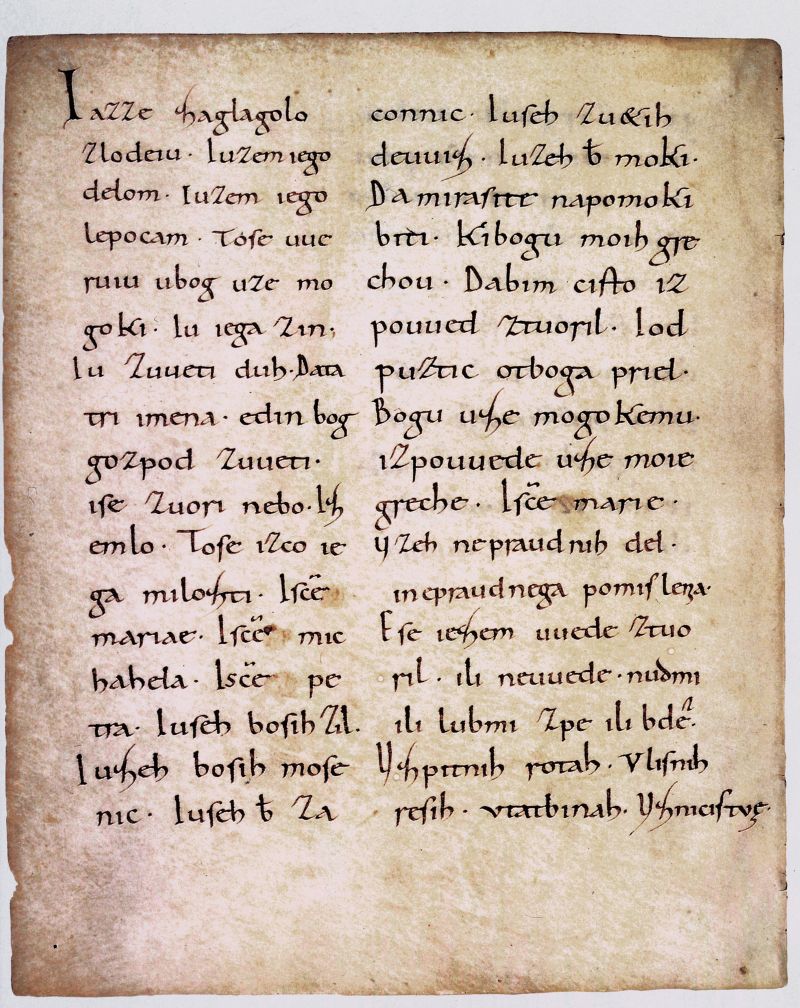 Iazze zaglagolo
zlodeiu. Iuzem iego
delom. Iuzem iego
lepocam. Tose uue
ruiu ubog uze mo
goki. Iu iega zin.
Iu zuueti duh. Data
tri imena. edin bog
gozpod zuueti.
ise zuori nebo. Iz
emlo. Tose izco ie
ga milozti. Isc̃e
mariae. Isc̃e mic
hahela. Isc̃e pe
tra. Iuseh bosih zil.
Iuzeh bosih mose
nic. Iuseh b̄ za
connic. Iuseh zu&ih
deuuiz. Iuzeh b̄ moki.
Da mirasite napomoki
biti. Kibogu moih gre
chou. Dabim cisto iz
pouued ztuoril. Iod
puztic otboga priel.
Bogu uze mogokemu.
izpouuede uze moie
greche. Isc̃e marie.
Vzeh nepraudnih del.
inepraudnega pomislena.
Ese iezem uuede ztuo
ril. ili neuuede. nudmi
ili lubmi zpe ili bde.
Vzpitnih rotah. Vlisnih
resih. vtatbinah. Vznicistve